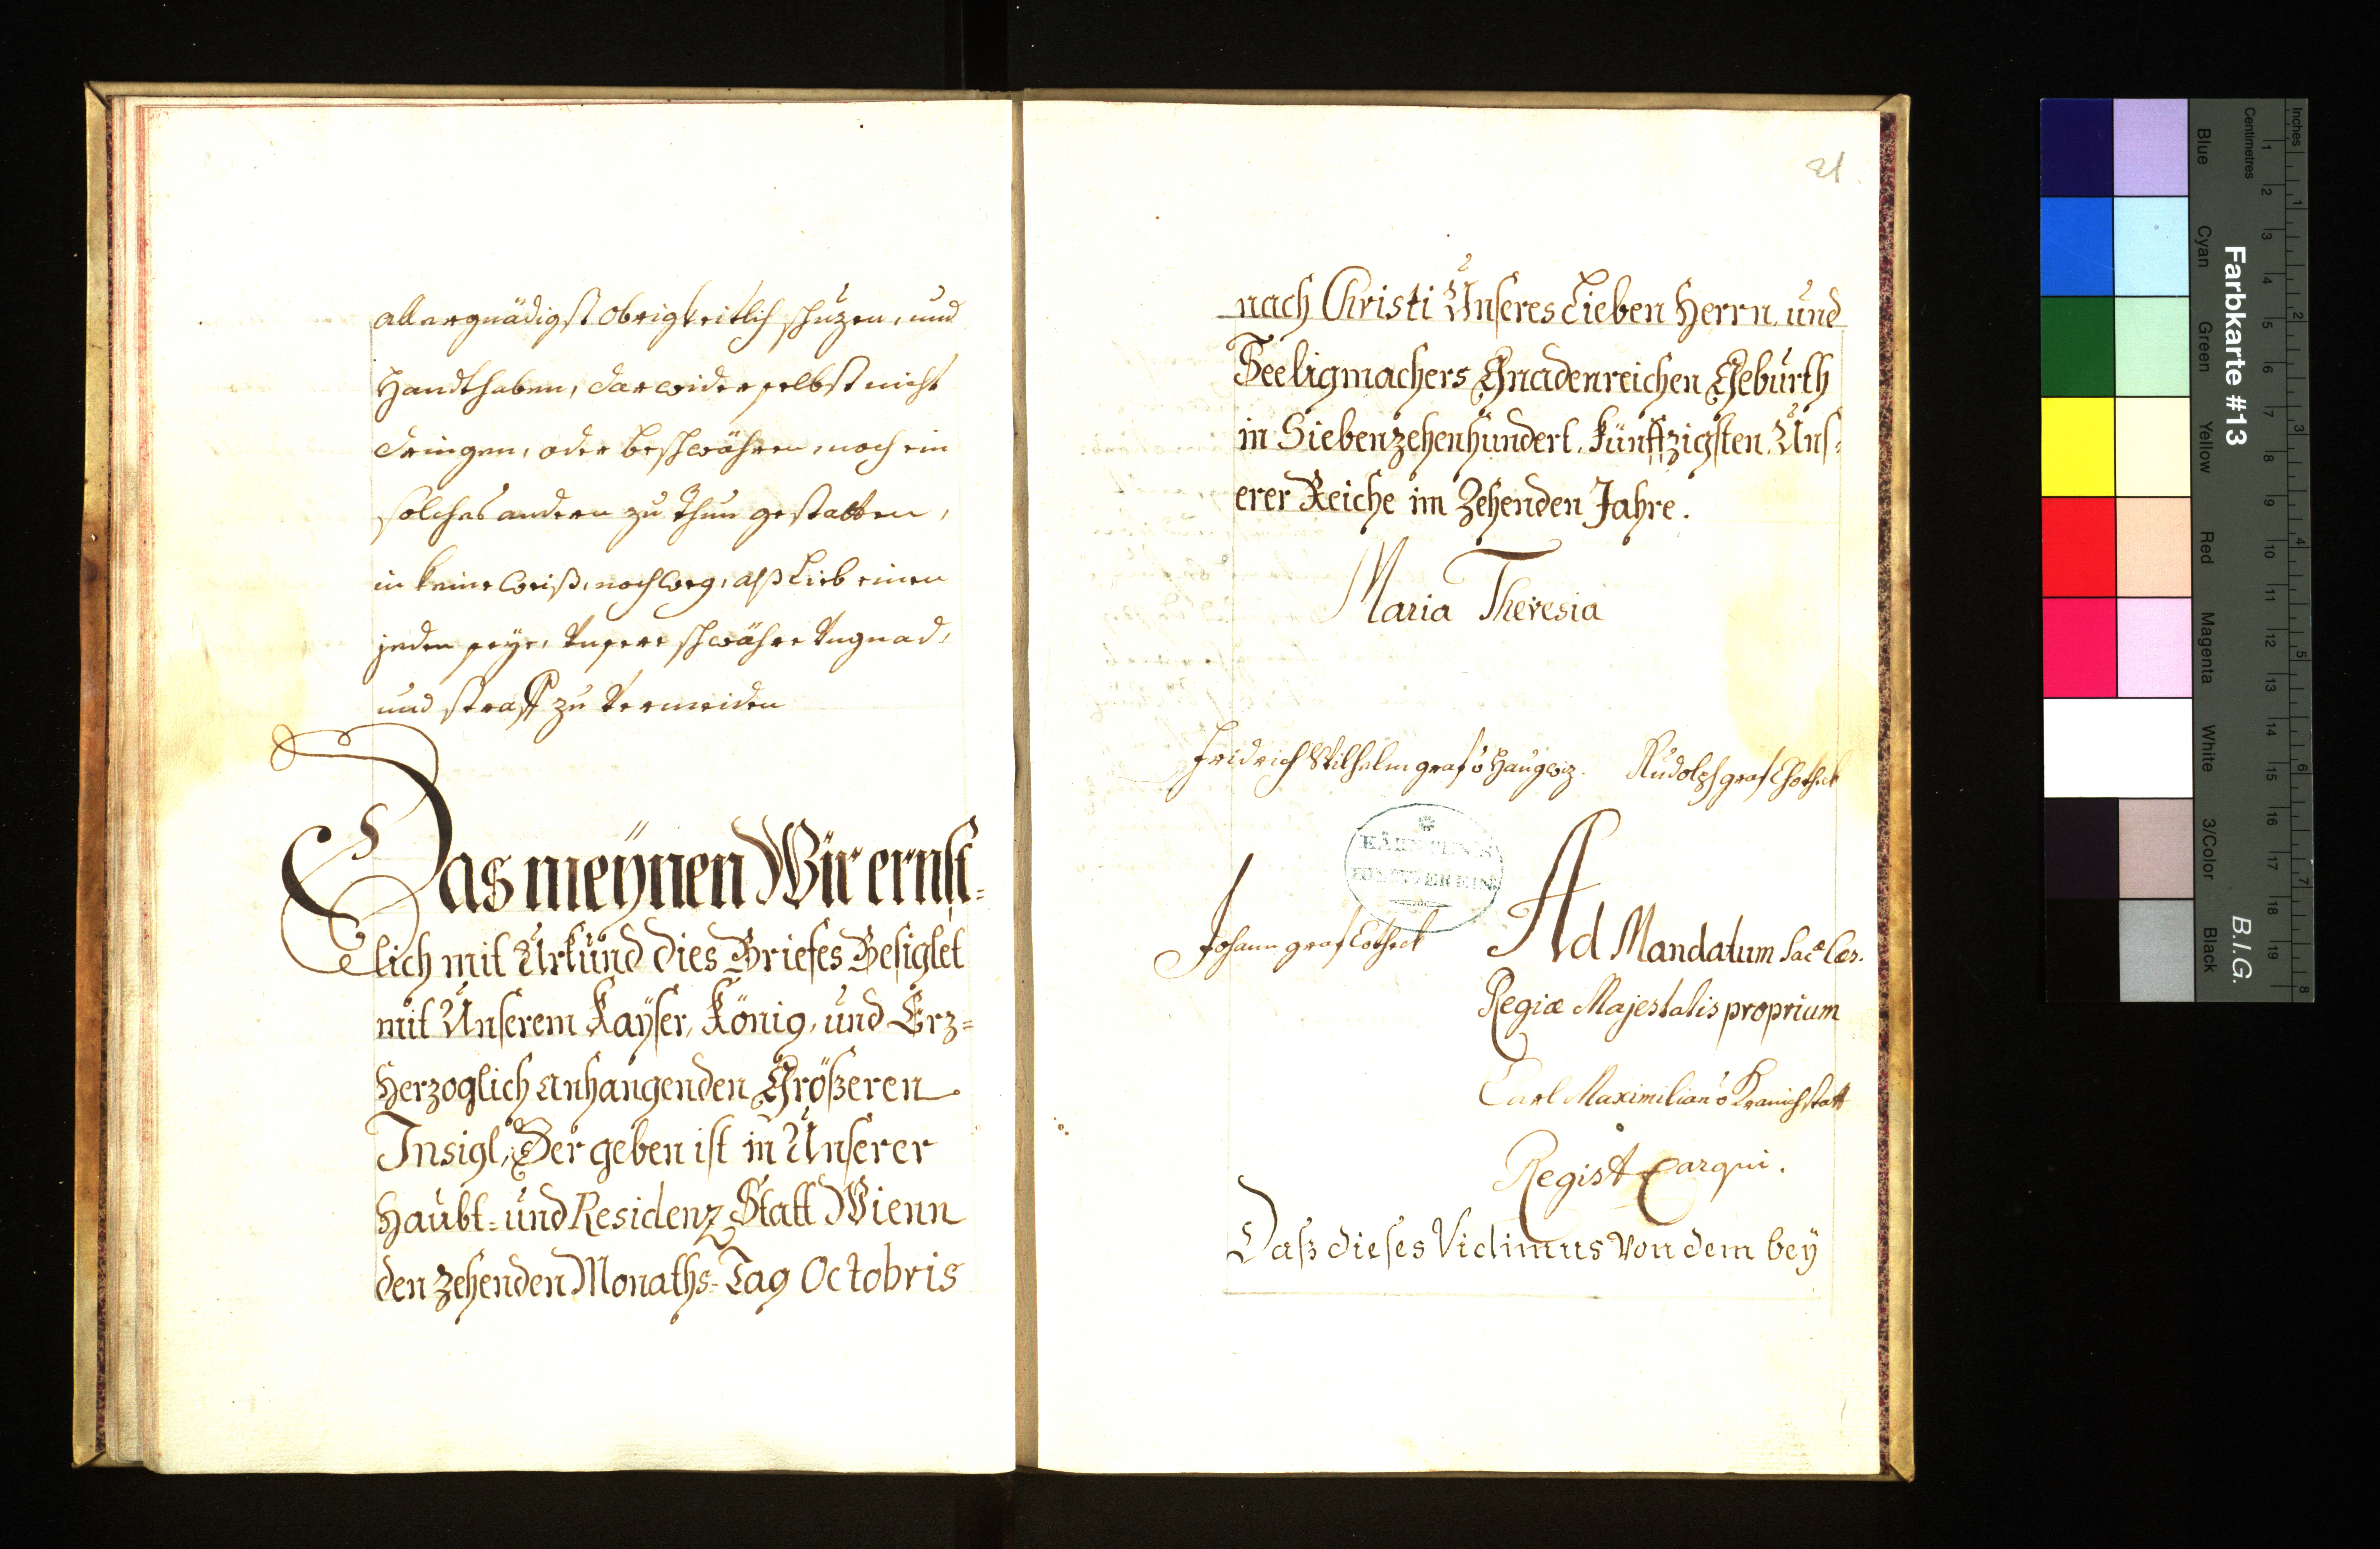 allergnädigst obrigkeitlich schuzen, und
Handthaben, darwider selbst nicht
dringen, oder beschwähren, noch ein
solches andern zu thun gestatten,
in keine weiß, noch weeg, alß Lieb einen
jeden seye, Unsere schwähre Ungnad,
und straff zu Vermeiden
Das meÿnen Wir ernst=
lich mit Urkund dies Briefes Besiglet
mit Unserem Kaÿser, König, und Erz=
Herzoglich anhangenden Größeren
Insigl, Der geben ist in Unserer
Haubt= und Residenz Statt Wienn
den zehenden Monaths=Tag Octobris
21.
nach Christi Unseres Lieben Herrn und
Seeligmachers Gnadenreichen Geburth
in Siebenzehenhundert Fünffzigsten Uns=
erer Reiche im Zehenden Jahre.
Maria Theresia
Fridrich Wilhelm graf v Haugwiz. Rudolph graf Chotheck
KÄRNTEN
Johann graf Cotheck Ad Mandatum Sac.ᵃ Cæs.
Regiæ Majestatis proprium
Carl Maximilian v Kranichstatt
Regist. Carqui.
Daß dieses Vidimus von dem beÿ
Farbkarte #13
B.I.G.
Inches 1 2 3 4 5 6 7 8
Centimetres 1 2 3 4 5 6 7 8 9 10 11 12 13 14 15 16 17 18 19
Blue Cyan Green Yellow Red Magenta White 3/Color Black